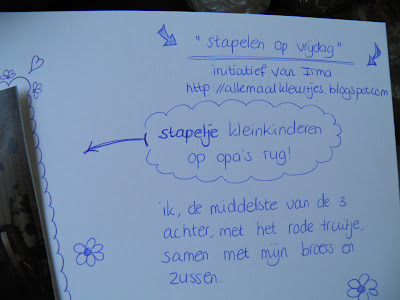 "stapelen op vrijdag"
initiatief van Irma
http://allemaalkleurtjes.blogspot.com
stapelje kleinkinderen
op opa's rug!
ik, de middelste van de 3
achter, met het rode truitje,
samen met mijn broers en
zussen.